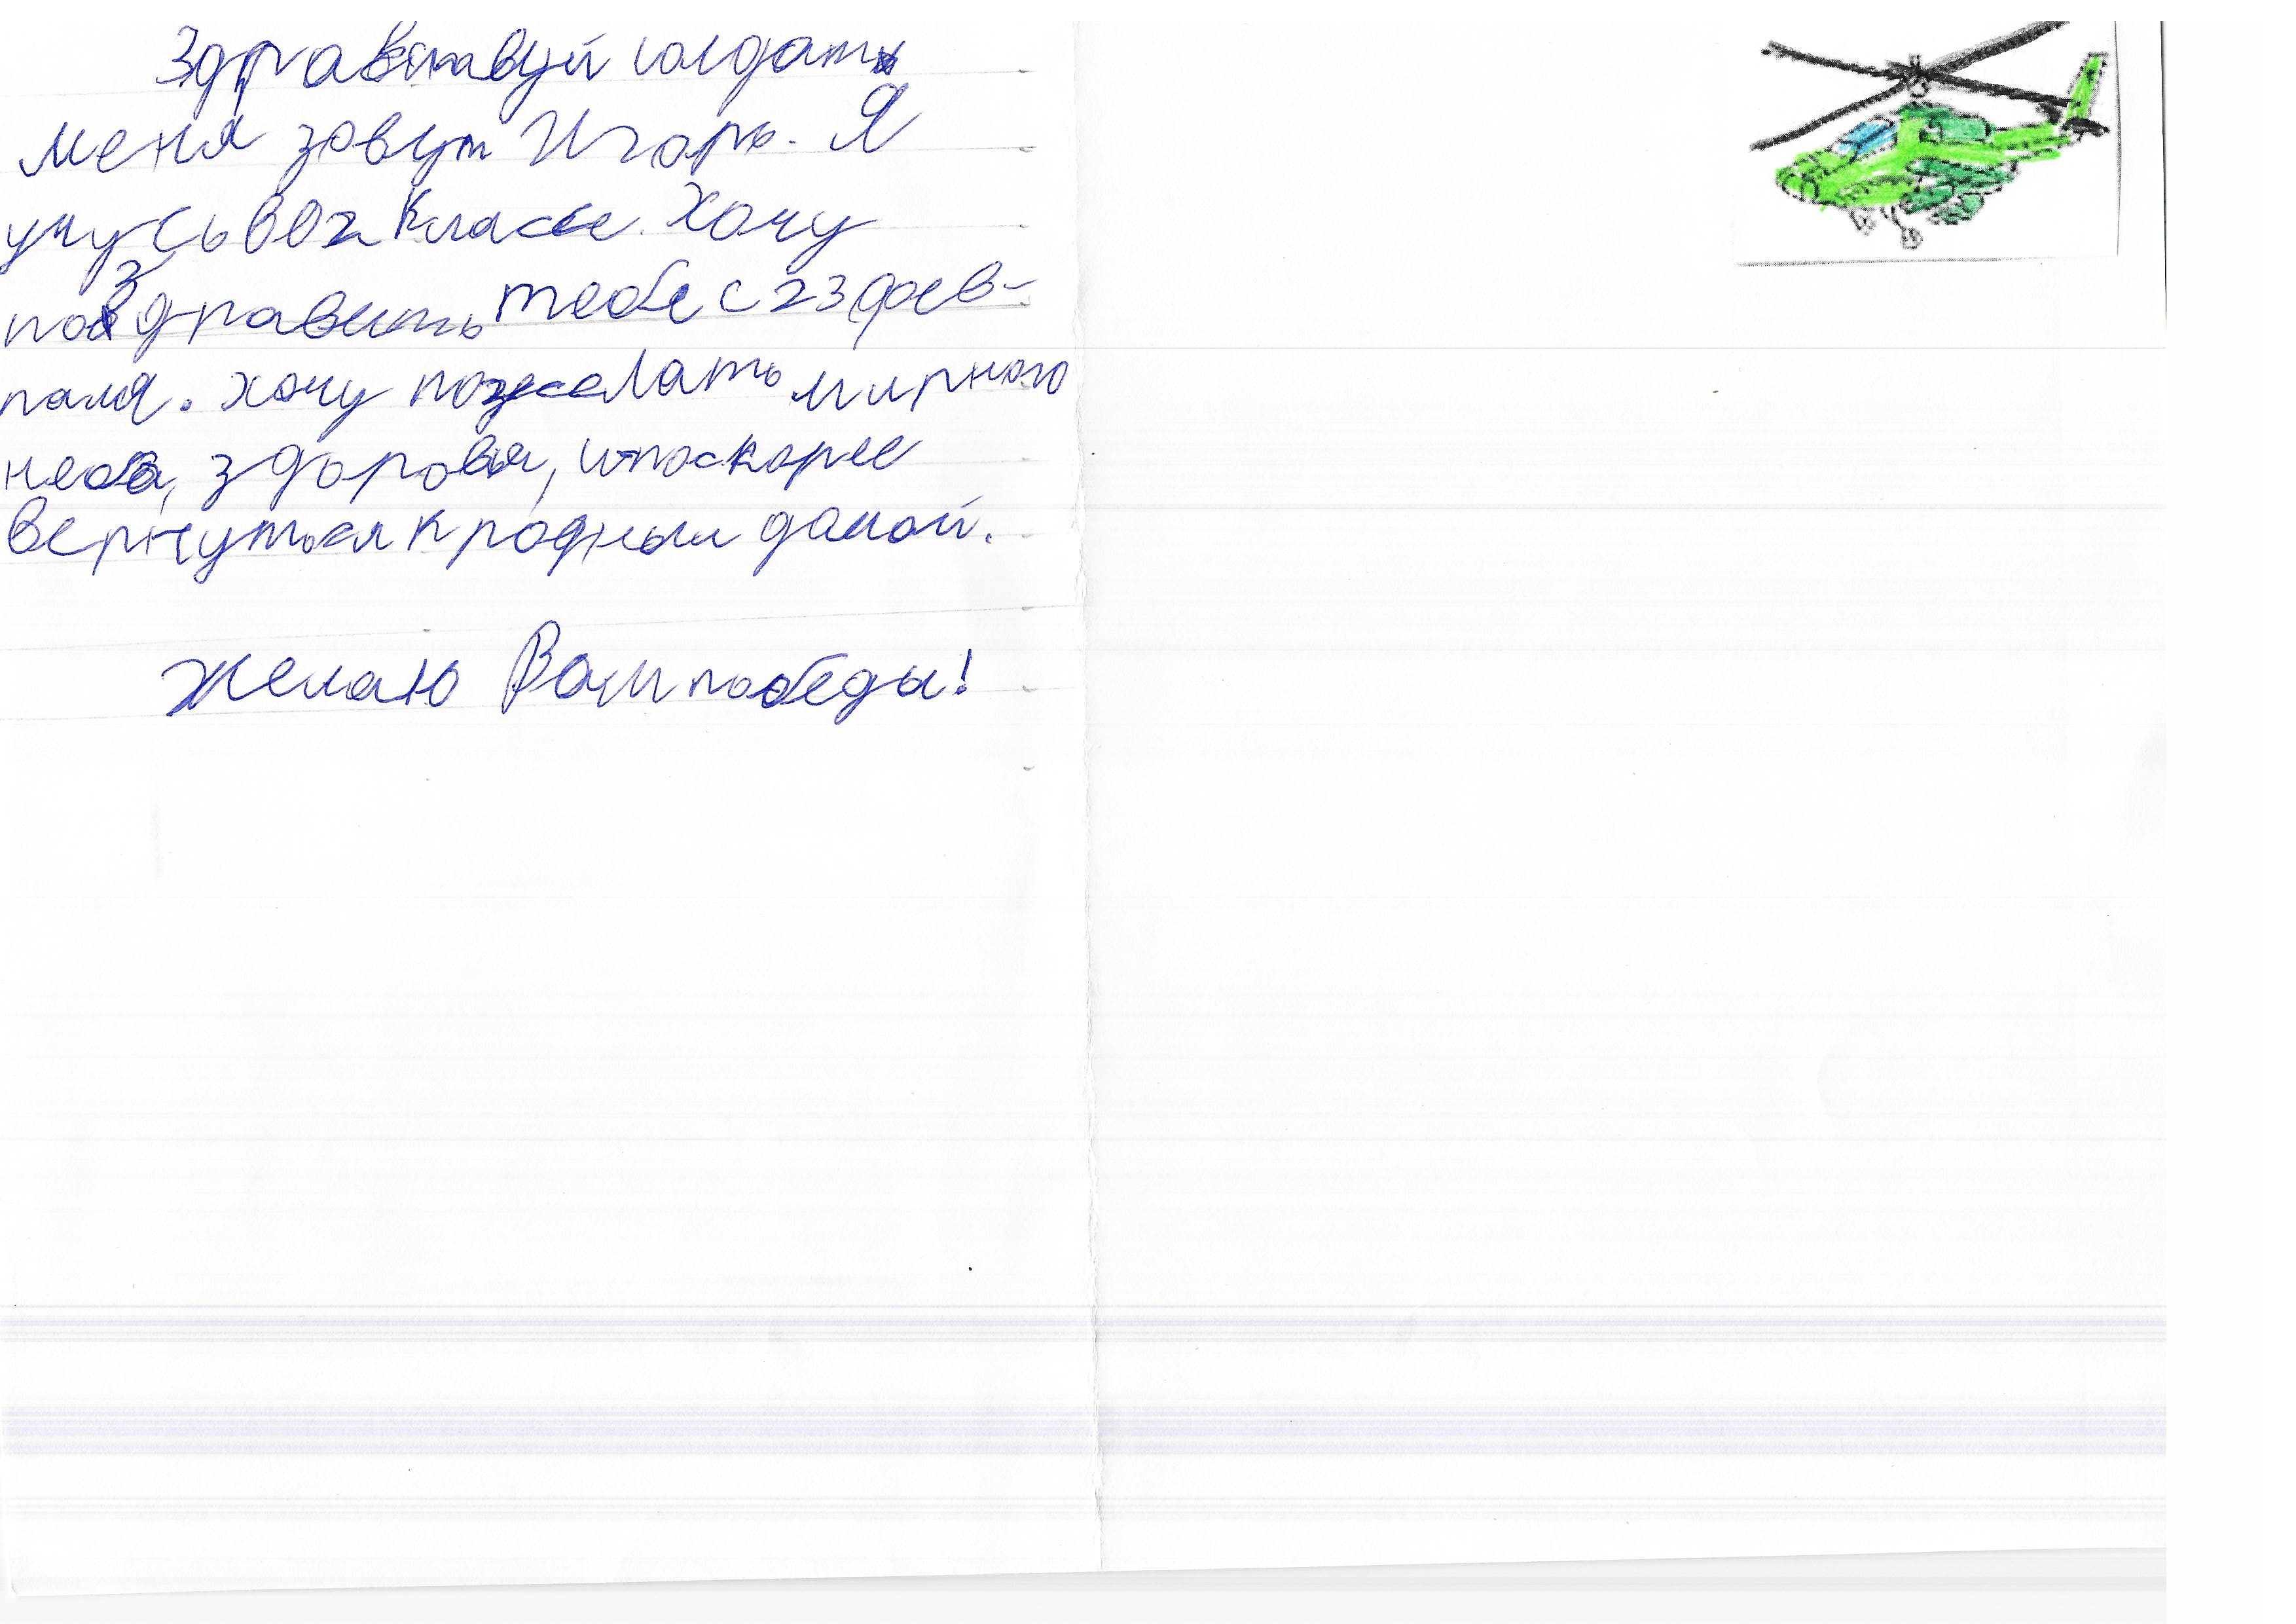 Здравствуй солдат
меня зовут Игорь. Я
учусь во 2 классе. Хочу
поздравить тебе с 23 фев-
паля. Хочу пожелать мирного
неба, здоровья, и поскорее
вернуться к родным домой.
Желаю Вам победы!